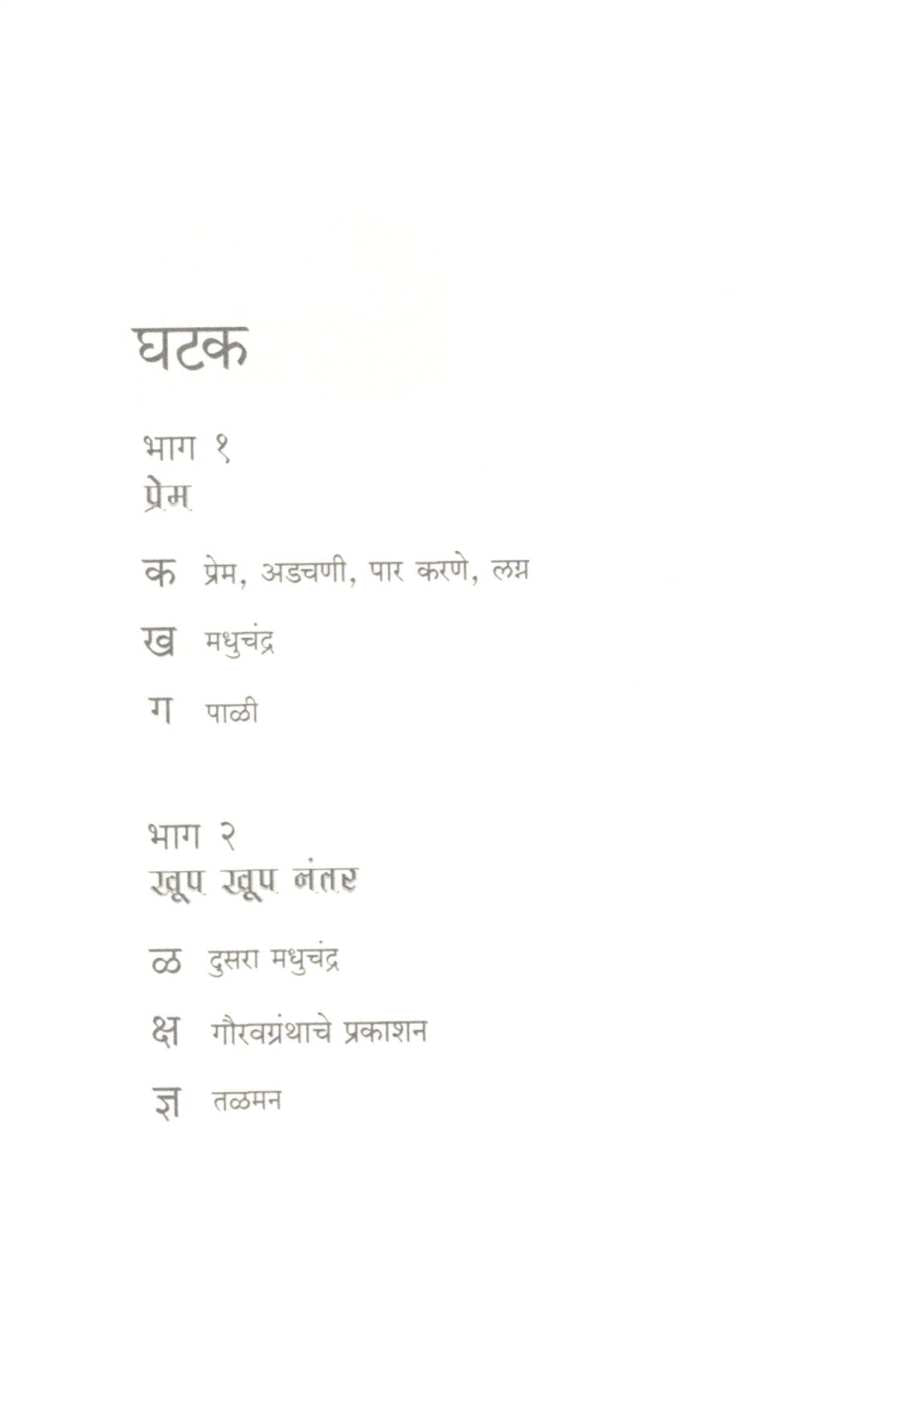 घटक
भाग १
प्रेम
क प्रेम, अडचणी, पार करणे, लग्न
ख मधुचंद्र
ग पाळी
भाग २
खूप खूप नंतर
ळ दुसरा मधुचंद्र
क्ष गौरवग्रंथाचे प्रकाशन
ज्ञ तळमन